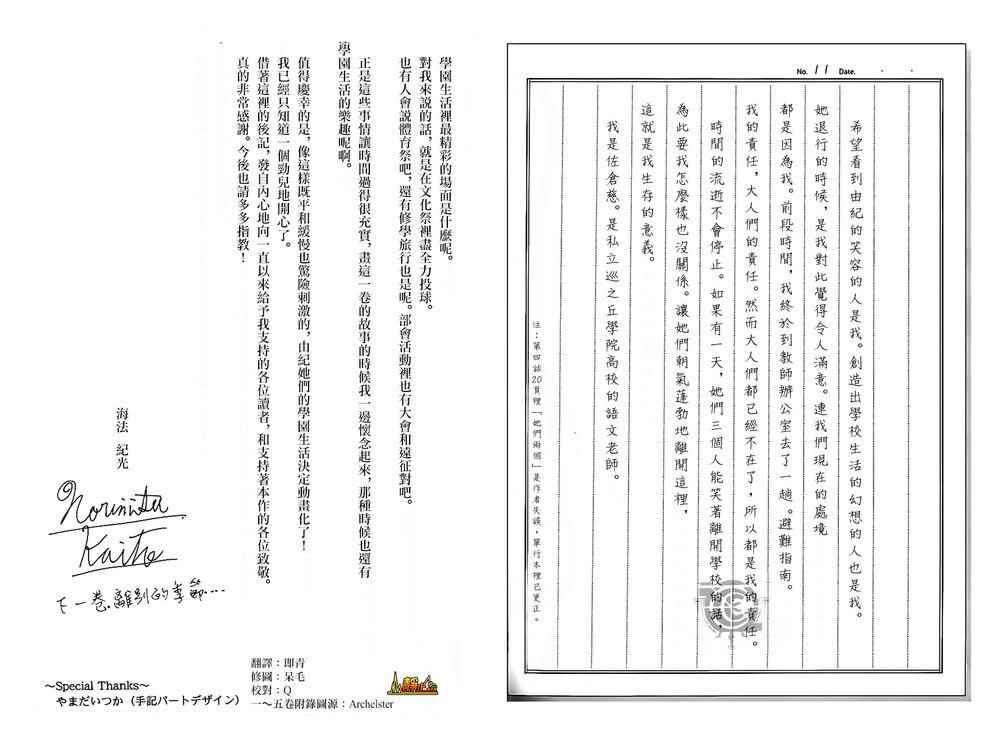 No. 11 Date. ・ ・
希望看到由紀的笑容的人是我。創造出學校生活的幻想的人也是我。
她退行的時候，是我對此覺得令人滿意。連我們現在的處境
都是因為我。前段時間，我終於到教師辦公室去了一趟。避難指南。
我的責任，大人們的責任。然而大人們都已經不在了，所以都是我的責任。
時間的流逝不會停止。如果有一天，她們三個人能笑著離開學校的話，
為此要我怎麼樣也沒關係。讓她們朝氣蓬勃地離開這裡，
這就是我生存的意義。
我是佐倉慈。是私立巡之丘學院高校的語文老師。
注：第四話20頁裡「她們兩個」是作者失誤，單行本裡已更正。
學園生活裡最精彩的場面是什麼呢。
對我來說的話，就是在文化祭裡盡全力投球。
也有人會說體育祭吧，還有修學旅行也是呢。部會活動裡也有大會和遠征對吧。
正是這些事情讓時間過得很充實，畫這一卷的故事的時候我一邊懷念起來，那種時候也還有
學園生活的樂趣呢啊。
值得慶幸的是，像這樣既平和緩慢也驚險刺激的，由紀她們的學園生活決定動畫化了！
我已經只知道一個勁兒地開心了。
借著這裡的後記，發自內心地向一直以來給予我支持的各位讀者，和支持著本作的各位致敬。
真的非常感謝。今後也請多多指教！
海法 紀光
Norimitsu
Kaiho
下一卷,離別的季節····
～Special Thanks～
やまだいつか（手記パートデザイン）
翻譯：即青
修圖：呆毛
校對：Q
一～五卷附錄圖源：Archelster